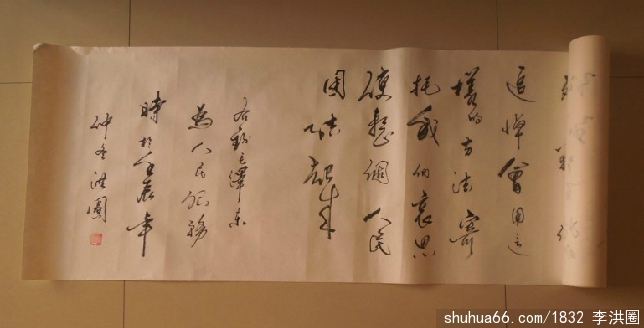 追悼會用这
樣的方法寄
托我们哀思
使整個人民
团结起来
右錄毛澤东
為人民服務
時於壬辰年
仲冬洪圈
shuhua66.com/1832 李洪圈